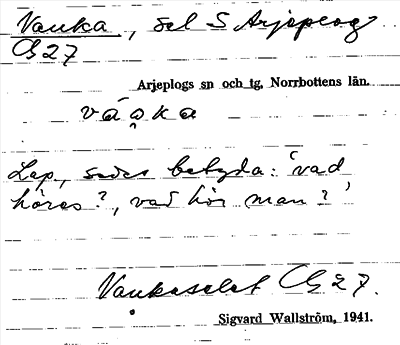 Vauka, sel S Arjeplog
Cg 27
Arjeplogs sn och tg, Norrbottens län.
váo̭ka
Lap., sades betyda: 'vad
höres?, vad hör man?'
Vaukaselet Cg 27.
Sigvard Wallström, 1941.